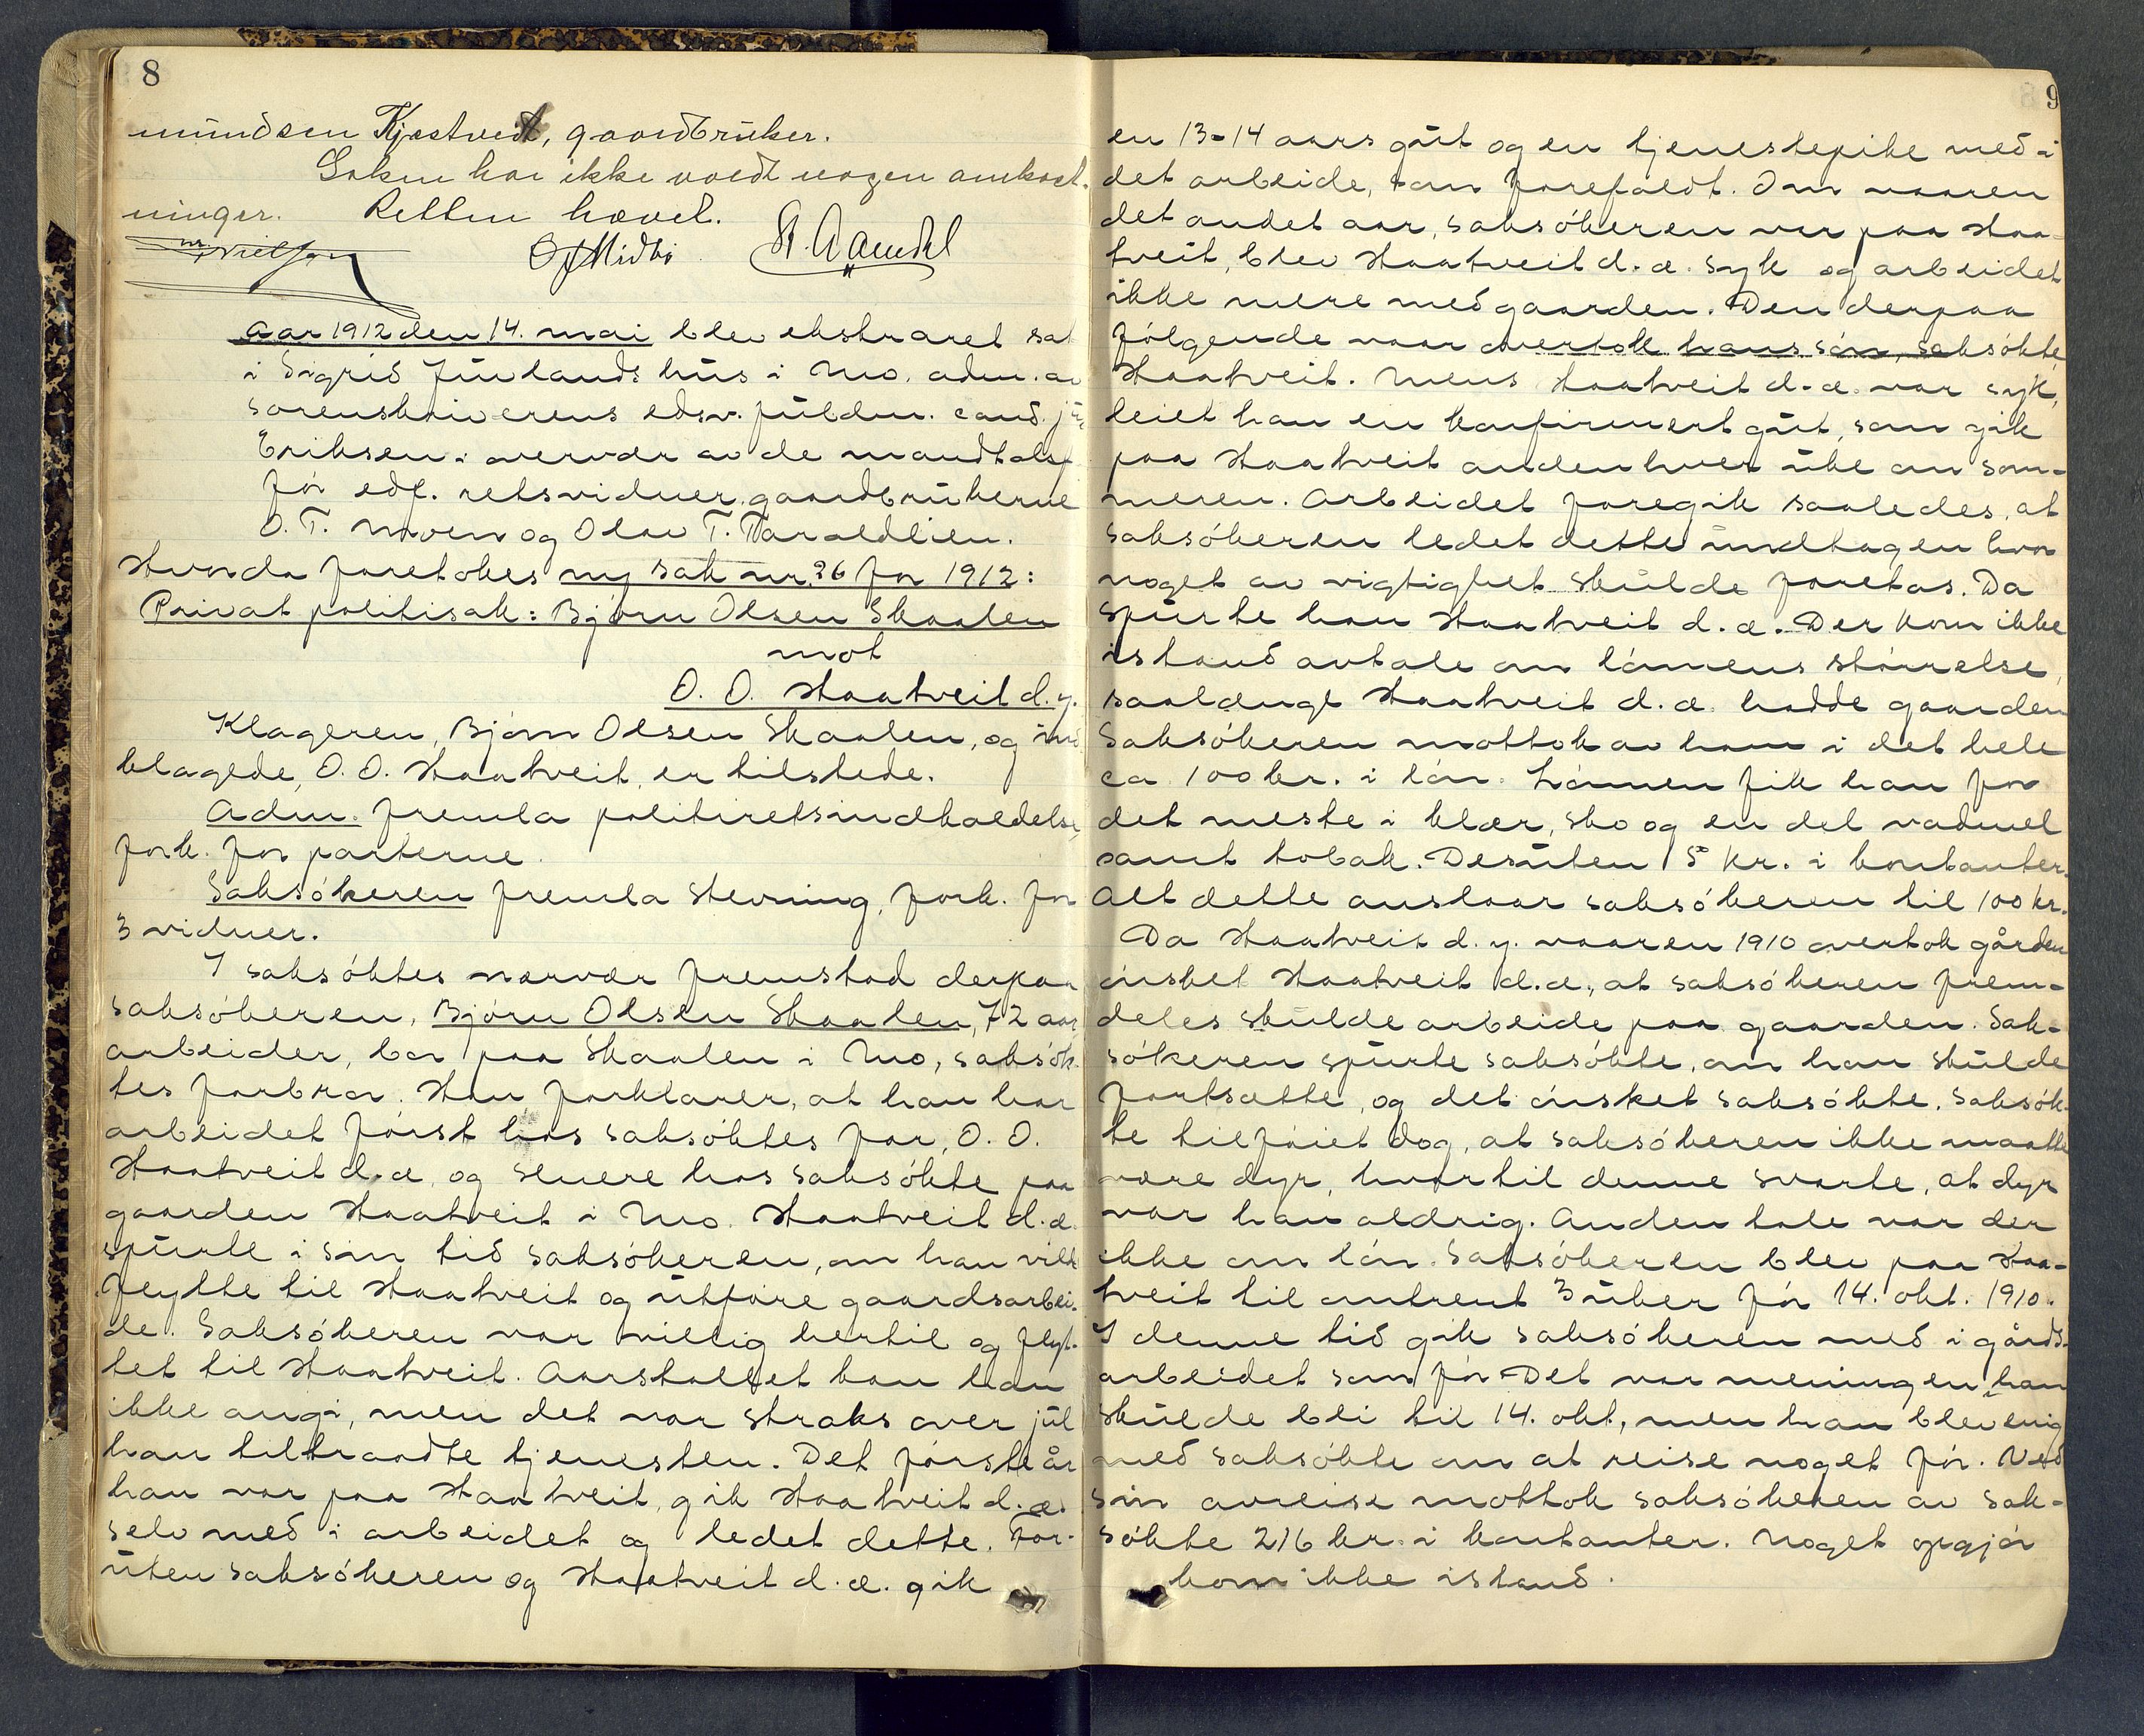 8
mundsen Kjestveit, gaardbruker.
Saken har ikke voldt nogen omkost-
ninger. Retten hævet.
O J Midbö St. A Aamdal
Aar 1912 den 14. mai blev ekstraret sat
i Sigrid Juvlands hus i Mo. adm. av
sorenskriverens edsv. fuldm. cand. jur.
Eriksen i overvær av de mandtalsf.
før edf. retsvidner gaardbrukerne
O. T. Moen og Olav T. Taraldlien.
Hvorda foretokes ny sak nr. 26 for 1912:
Privat politisak: Bjørn Olsen Skaalen
mot
O. O. Haatveit d. y.
Klageren, Bjørn Olsen Skaalen, og ind-
klagede, O. O. Haatveit, er tilstede.
Adm. fremla politiretsindkaldelse,
fork. for parterne.
Saksøkeren fremla stevning, fork. for
3 vidner.
I saksøktes nærvær fremstod derpaa
saksøkeren, Bjørn Olsen Skaalen, 72 aar
arbeider, bor paa Skaalen i Mo, saksøk-
tes farbror. Han forklarer, at han har
arbeidet først hos saksøktes far, O. O.
Haatveit d. æ. og senere hos saksøkte paa
gaarden Haatveit i Mo. Haatveit d. æ.
spurte i sin tid saksøkeren, om han vilde
flytte til Haatveit og utføre gaardsarbei-
de. Saksøkeren var villig hertil og flyt-
tet til Haatveit. Aarstallet kan han
ikke angi, men det var straks over jul
han tiltraadte tjenesten. Det første år
han var paa Haatveit, gik Haatveit d. æ.
selv med i arbeidet og ledet dette. For-
uten saksøkeren og Haatveit d. æ. gik
9
en 13-14 aars gut og en tjenestepike med i
det arbeide, som forefaldt. Om vaaren
det andet aar, saksøkeren var paa Haa-
tveit, blev Haatveit d. æ. syk og arbeidet
ikke mere med gaarden. Den derpaa
følgende vaar overtok hans søn, saksøkte,
Haatveit. Mens Haatveit d. æ. var syk,
leiet han en konfirmert gut, som gik
paa Haatveit anden hver uke om som-
meren. Arbeidet foregik saaledes, at
saksøkeren ledet dette undtagen hvor
noget av vigtighet skulde foretas. Da
spurte han Haatveit d. æ. Der kom ikke
istand avtale om lønnens størrelse,
saalængt Haatveit d. æ. hadde gaarden
Saksøkeren mottok av ham i det hele
ca 100 kr. i løn. Lønnen fik han for
det meste i klær, sko og en del vadmel
samt tobak. Desuten 5 kr. i kontanter.
Alt dette anslaar saksøkeren til 100 kr.
Da Haatveit d. y. vaaren 1910 overtok gården
ønsket Haatveit d. æ., at saksøkeren frem-
deles skulde arbeide paa gaarden. Sak-
søkeren spurte saksøkte, om han skulde
fortsætte, og det ønsket saksøkte. Saksøk-
te tilføiet dog, at saksøkeren ikke maatte
være dyr, hvortil denne svarte, at dyr
var han aldrig. Anden tale var der
ikke om løn. Saksøkeren blev paa Haa-
tveit til omtrent 3 uker før 14. okt. 1910.
I denne tid gik saksøkeren med i gårds-
arbeidet som før. Det var meningen han
skulde bli til 14. okt., men han blev enig
med saksøkte om at reise noget før. Ved
sin avreise mottok saksøkeren av sak-
søkte 216 kr. i kontanter. Noget opgjør
kom ikke istand.